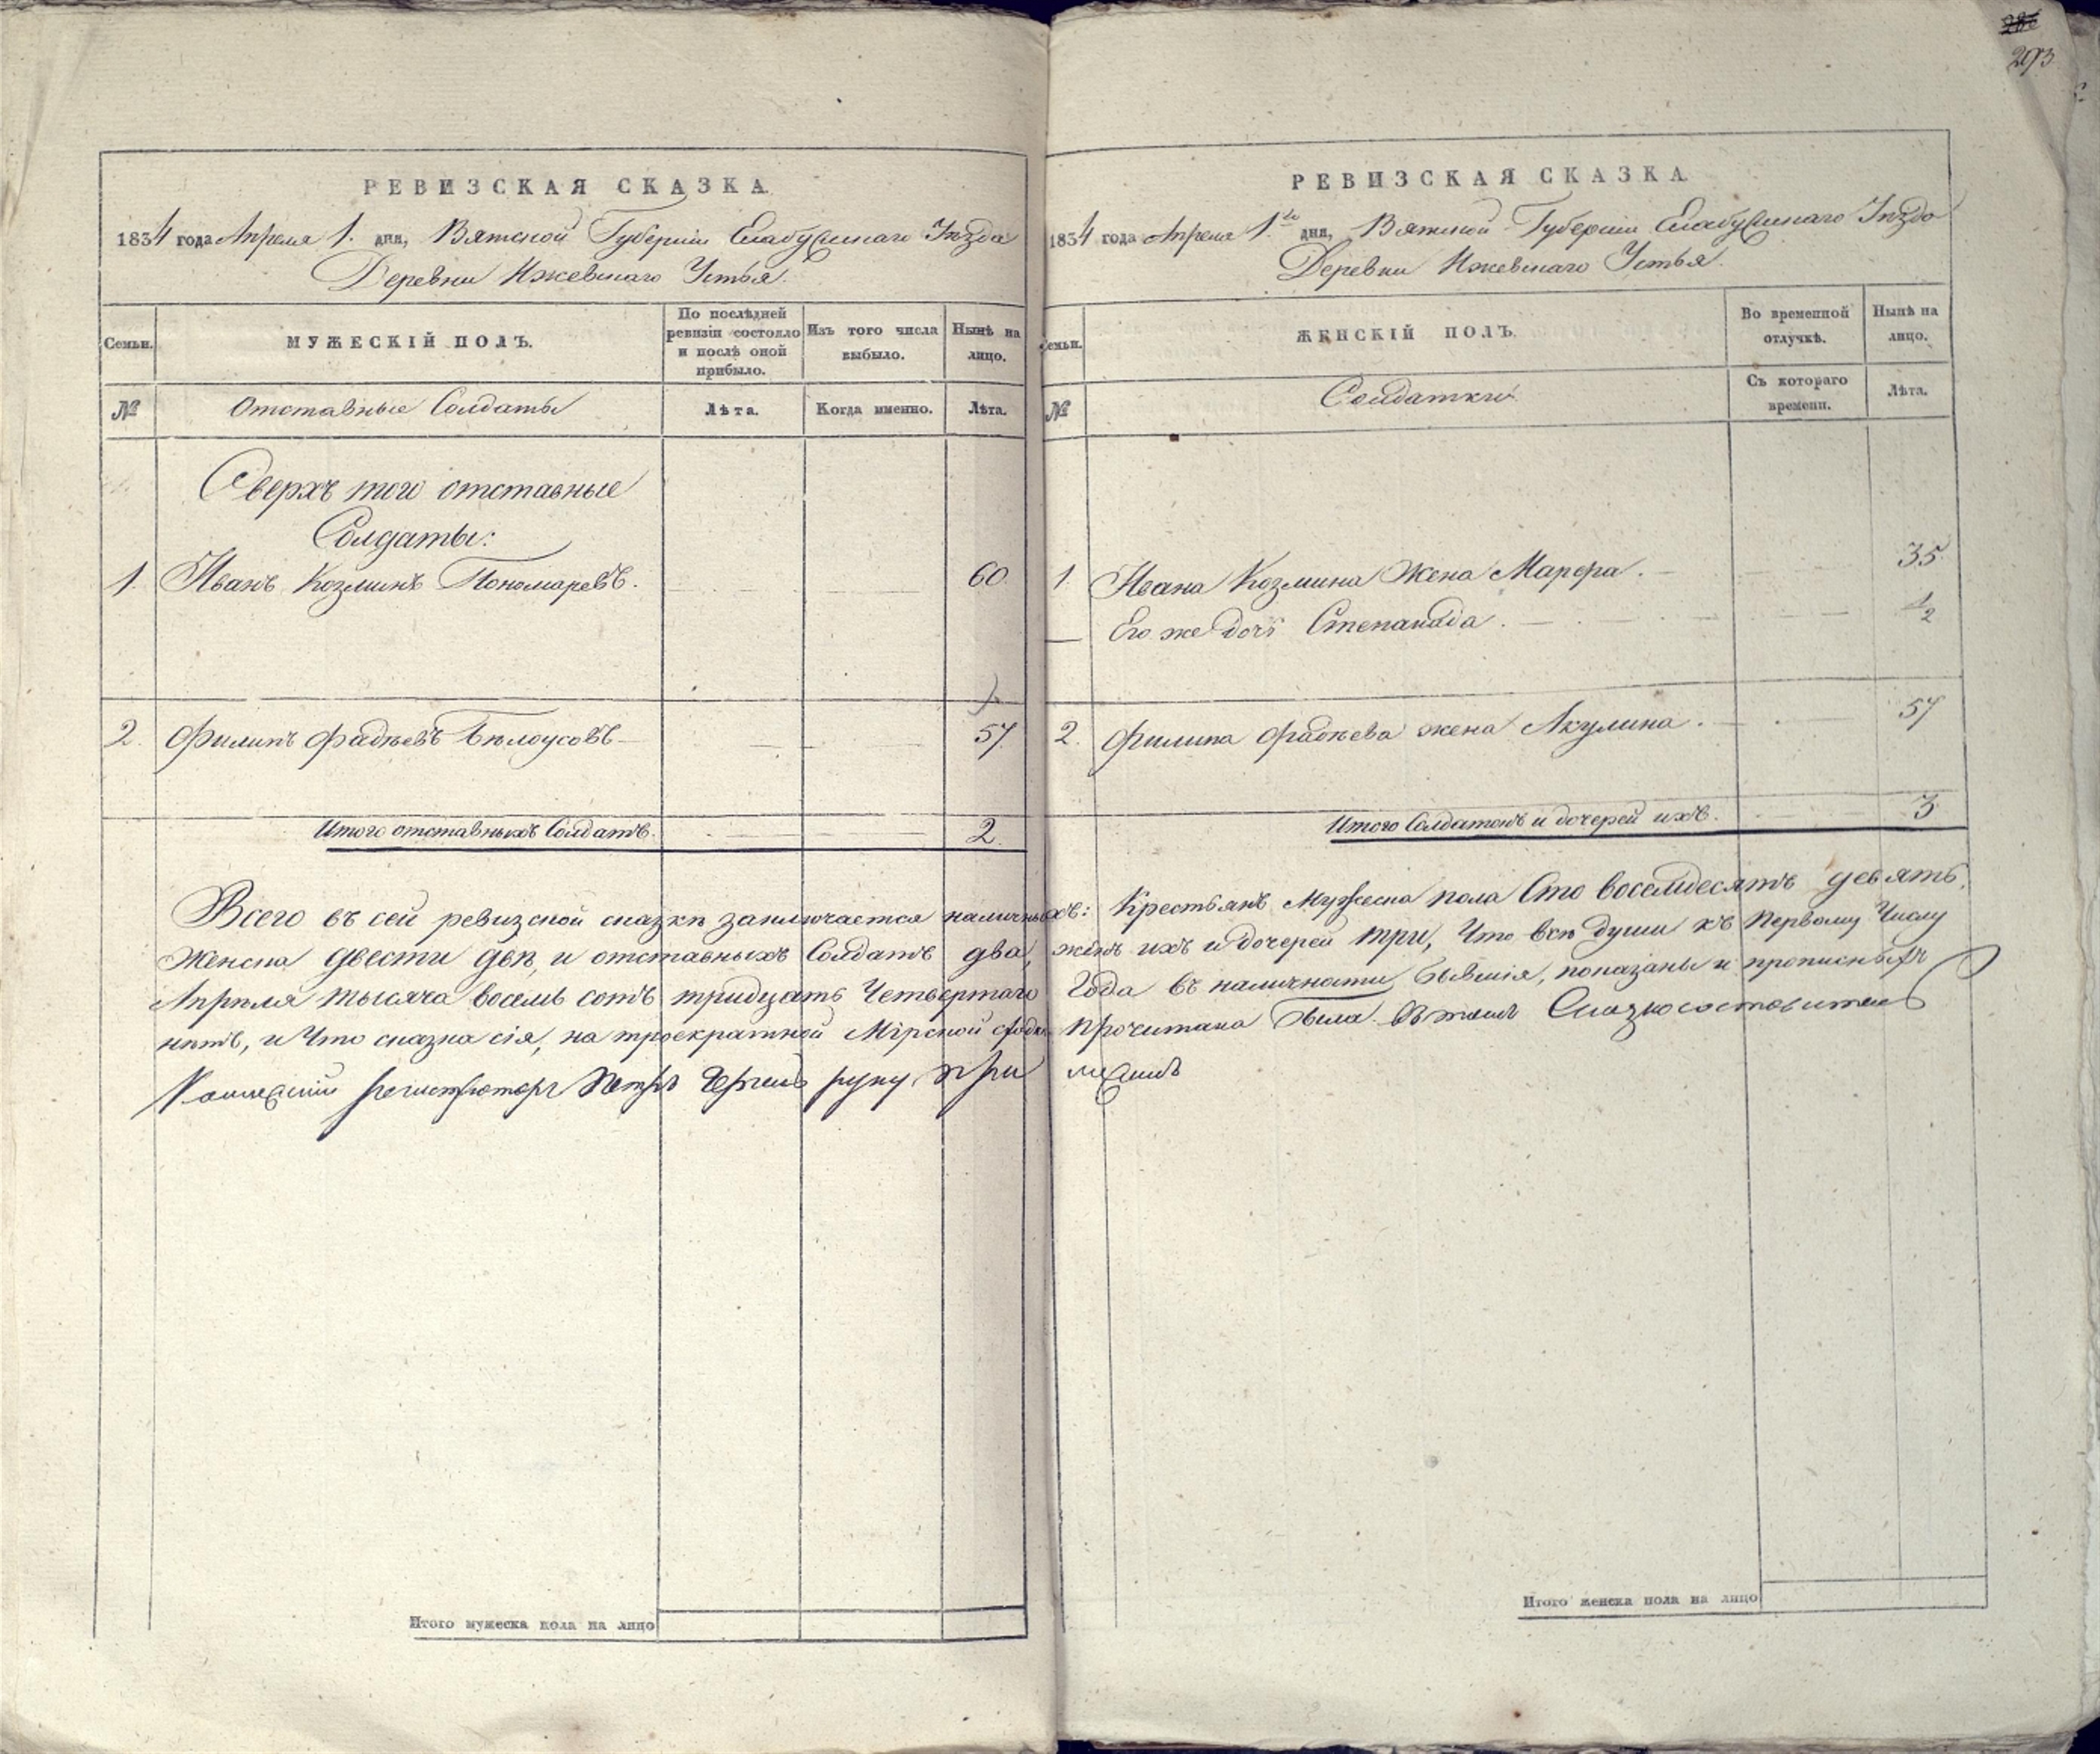 286
293
РЕВИЗСКАЯ СКАЗКА.
1834 года Апреля 1. дня, Вятской Губерніи Елабужскаго Уѣзда
Деревни Ижевскаго Устья.
Семьи.
МУЖЕСКІЙ ПОЛЪ.
По послѣдней ревизіи состояло и послѣ оной прибыло.
Изъ того числа выбыло.
Нынѣ на лицо.
№
Отставные Солдаты
Лѣта.
Когда именно.
Лѣта.
Сверхъ того отставные
Солдаты:
1. Иванъ Козминъ Пономаревъ. 60.
2. Филипъ Фадѣевъ Бѣлоусовъ 57.
Итого отставныхъ Солдатъ. 2.
РЕВИЗСКАЯ СКАЗКА.
1834 года Апреля 1го дня, Вятской Губерніи Елабужскаго Уѣзда
Деревни Ижевскаго Устья.
Семьи.
ЖЕНСКІЙ ПОЛЪ.
Во временной отлучкѣ.
Нынѣ на лицо.
№
Солдатки
Съ котораго времени.
Лѣта.
1. Ивана Козмина Жена Марфа. 35.
Его же дочь Степанида. 1/2
2. Филипа Фадѣева жена Акулина. 57
Итого Солдатокъ и дочерей ихъ. 3
Всего въ сей ревизской сказкѣ заключается наличныхъ: Крестьянъ Мужеска пола Сто восемдесятъ девять,
Женска двести две, и отставныхъ Солдатъ два, жёнъ ихъ и дочерей три, Что всѣ души къ Первому Числу
Апрѣля тысяча восемь сотъ тридцать Четвертаго Года въ наличности бывшія, показаны и прописныхъ
нѣтъ, и Что сказка сія, на троекратной Мірской сходкѣ прочитана была. Въ томъ Сказкосоставитель
Коллежскій регистраторъ Петръ руку приложилъ
Итого мужеска пола на лицо
Итого женска пола на лицо